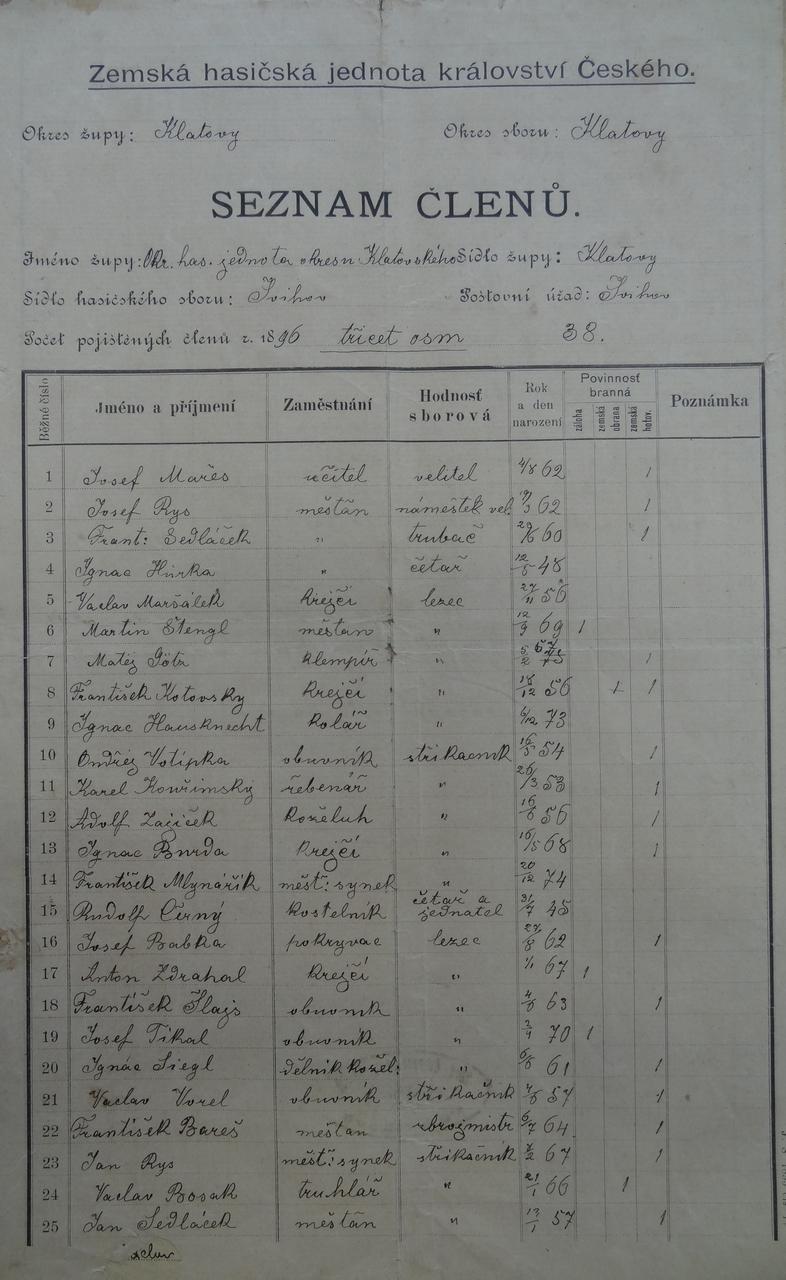 Zemská hasičská jednota království Českého.
Okres župy: Klatovy Okres sboru: Klatovy
SEZNAM ČLENŮ.
Jméno župy: Okr. has. jednota okresu Klatovského Sídlo župy: Klatovy
Sídlo hasičského sboru: Švihov Poštovní úřad: Švihov
Počet pojištěných členů r. 1896 třicet osm 38.
Běžné číslo Jméno a příjmení Zaměstnání Hodnosť sborová Rok a den narození Povinnosť branná záloha zemská obrana zemská hotov. Poznámka
1 Josef Mareš učitel velitel 4/8 62 /
2 Josef Rys měštan náměstek vel. /3 62 /
3 Frant: Sedláček " trubač 29/6 60 /
4 Ignac Hůrka " četař 12/5 48
5 Vaclav Maršálek krejčí lezec 27/11 56
6 Martin Stengl měštan " 12/9 69 /
7 Matěj Götz klempíř " 5/2 67 /
8 František Kotovsky Krejčí " 18/12 56 /
9 Ignac Hausknecht Kolář " 6/12 73
10 Ondřej Votipka obuvník střikačnik 16/5 54 /
11 Karel Kouřimský řebenář " 26/3 53 /
12 Adolf Zajiček Koželuh " 16/6 56 /
13 Ignac Burda Krejčí " 16/5 68 /
14 František Mlynářik měšť: synek " 20/12 74
15 Rudolf Černý kostelník četař a jednatel 31/7 45
16 Josef Babka pokryvac lezec 27/8 62 /
17 Anton Zdrahal Krejčí " 1/1 67 /
18 František Šlajs obuvník " 4/6 63 /
19 Josef Tikal obuvník " 70 /
20 Ignác Siegl dělnik kožel: " 6/6 61 /
21 Vaclav Vorel obuvník střikačnik 57 /
22 František Bareš měštan zbrojmistr 6/7 64 /
23 Jan Rys měšť: synek střikačnik /2 67 /
24 Vaclav Bosak truhlář " 21/1 66 /
25 Jan Sedláček měštan " 13/1 57 /